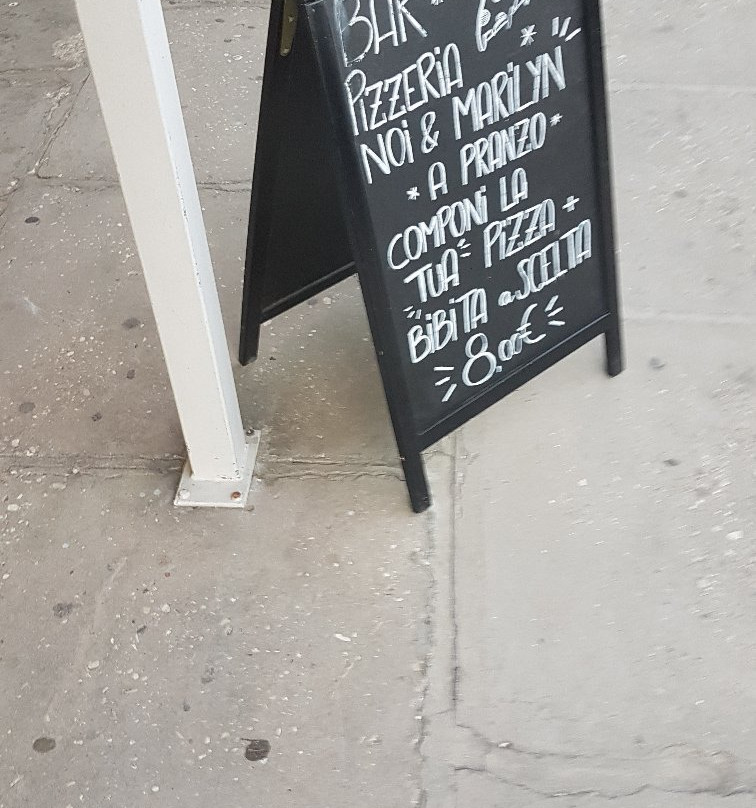 BAR *
PIZZERIA *
NOI & MARILYN
* A PRANZO *
COMPONI LA
TUA PIZZA +
BIBITA a SCELTA
8,00€